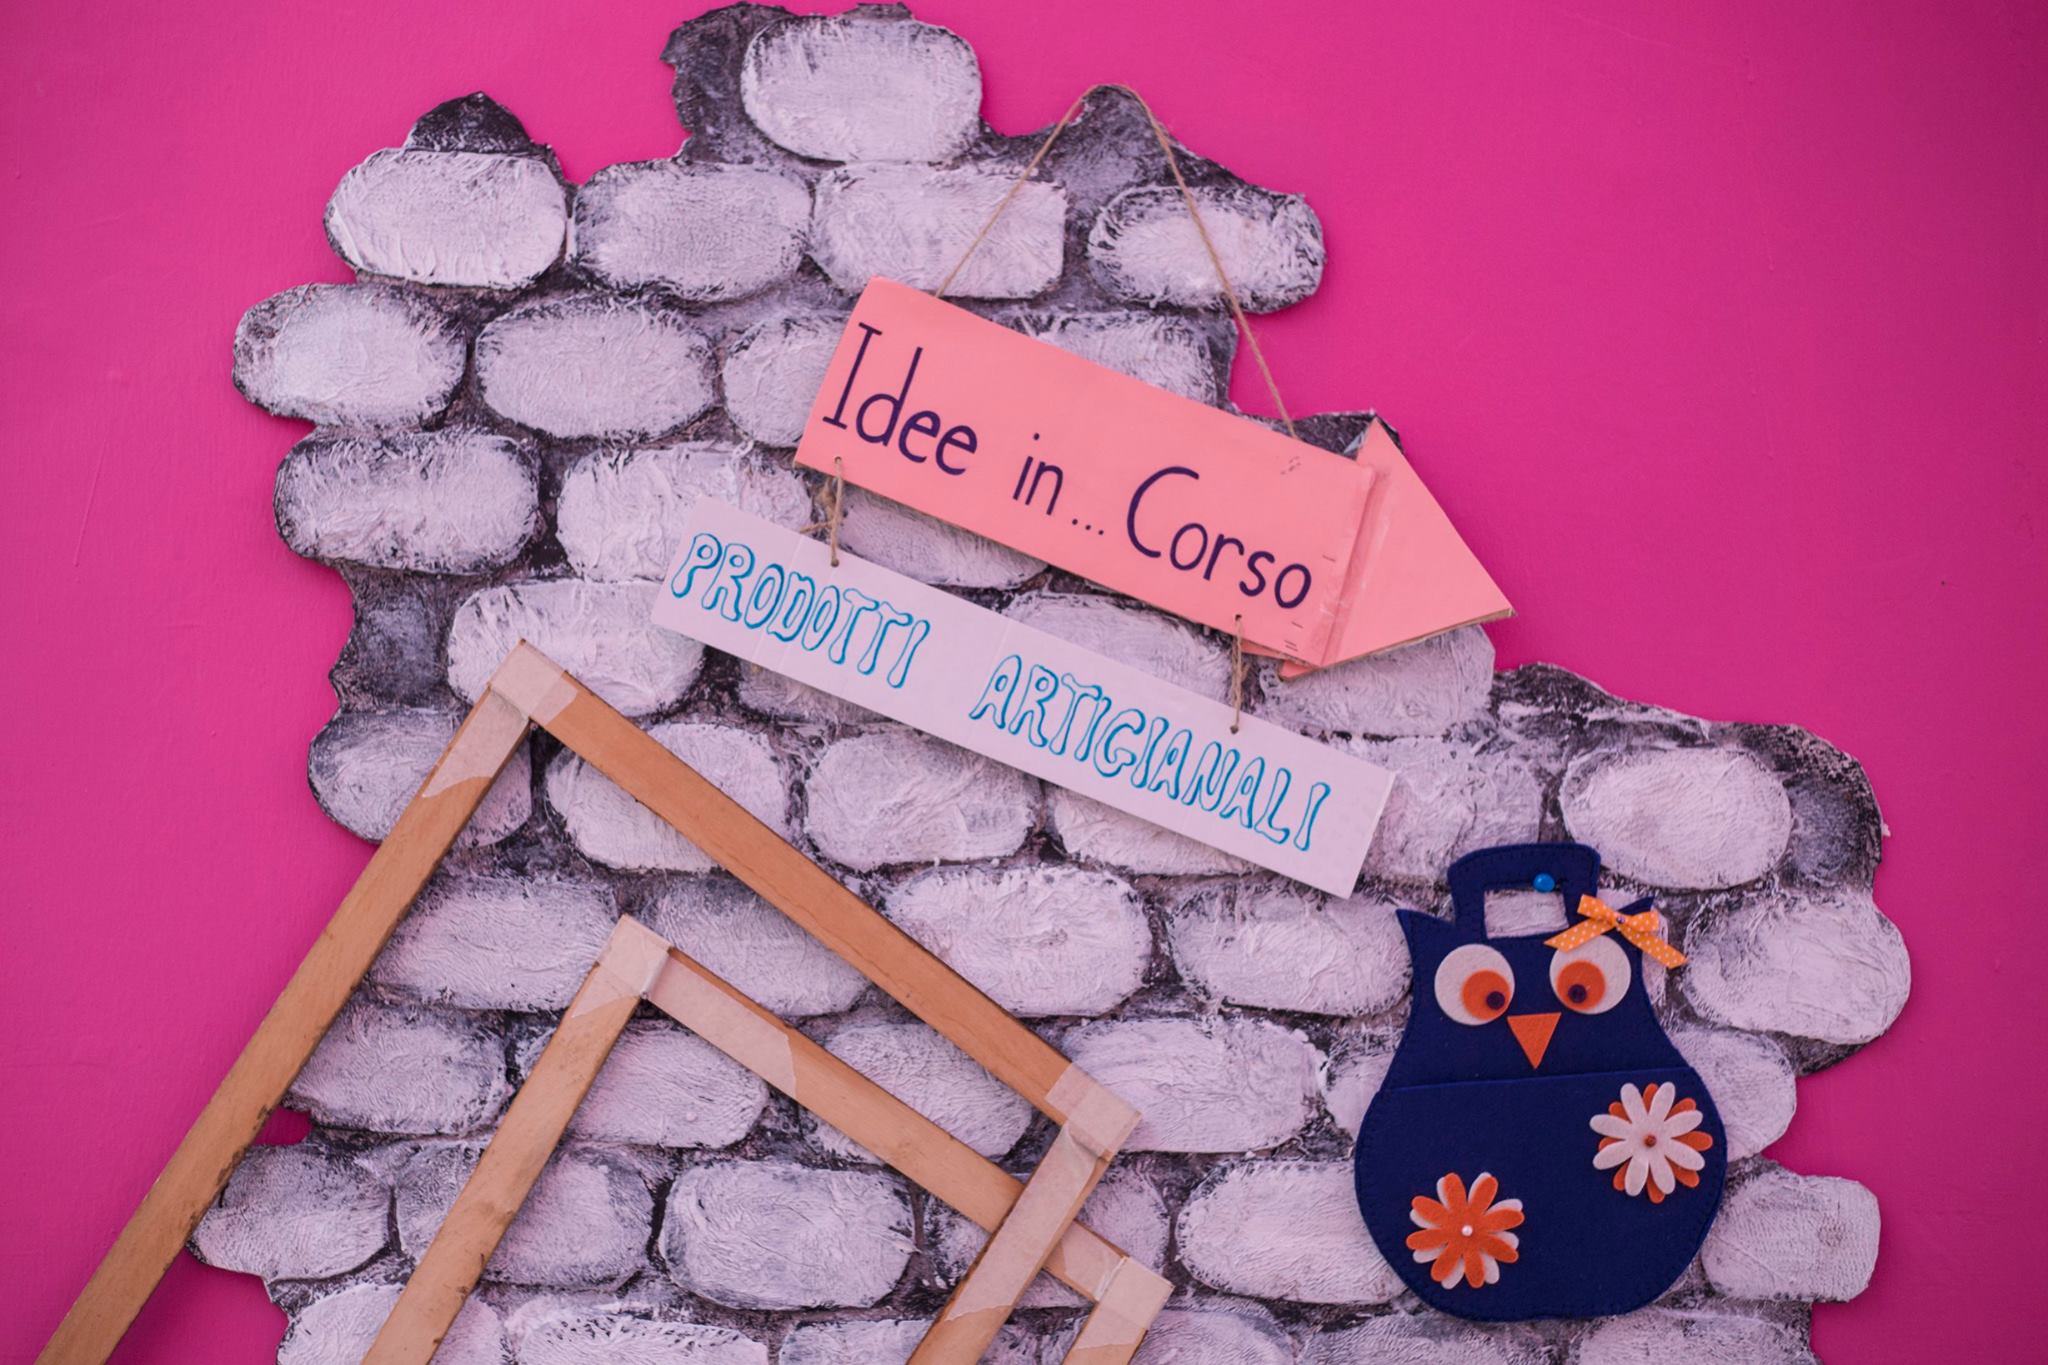 Idee in... Corso
PRODOTTI ARTIGIANALI